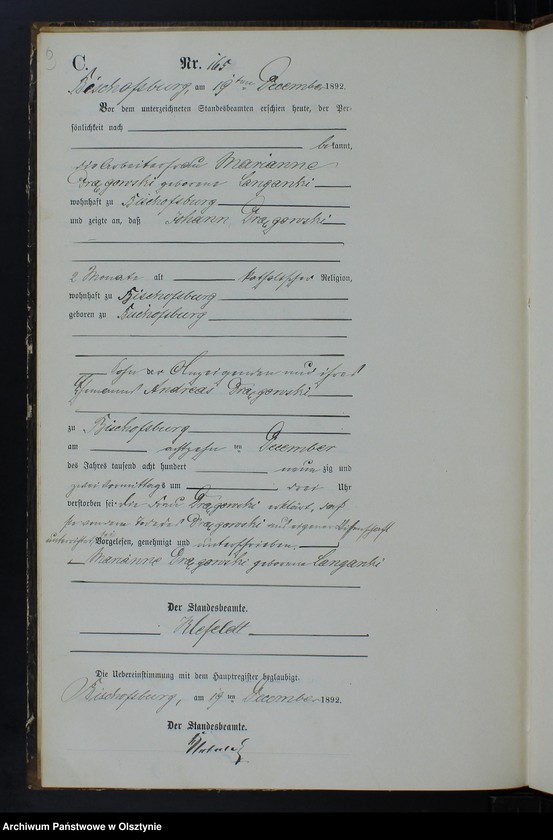 C.
Nr. 165
Bischofsburg, am 19ten December 1892.
Vor dem unterzeichneten Standesbeamten erschien heute, der Per-
sönlichkeit nach
bekannt,
die Arbeiterfrau Marianne
geborene Langanki
wohnhaft zu Bischofsburg
und zeigte an, daß Johann
2 Monate alt katholischer Religion,
wohnhaft zu Bischofsburg
geboren zu Bischofsburg
Sohn der Anzeigenden und ihres
Ehemannes Andreas
zu Bischofsburg
am achtzehnten December
des Jahres tausend acht hundert neunzig und
zwei Vormittags um drei Uhr
verstorben sei. Die Frau erklärt, daß
sie von dem Tode des aus eigener Wissenschaft
unterrichtet sei
Vorgelesen, genehmigt und unterschrieben
Marianne geborene Langanki
Der Standesbeamte.
Klefeldt
Die Uebereinstimmung mit dem Hauptregister beglaubigt.
Bischofsburg, am 19ten December 1892.
Der Standesbeamte.
Archiwum Państwowe w Olsztynie